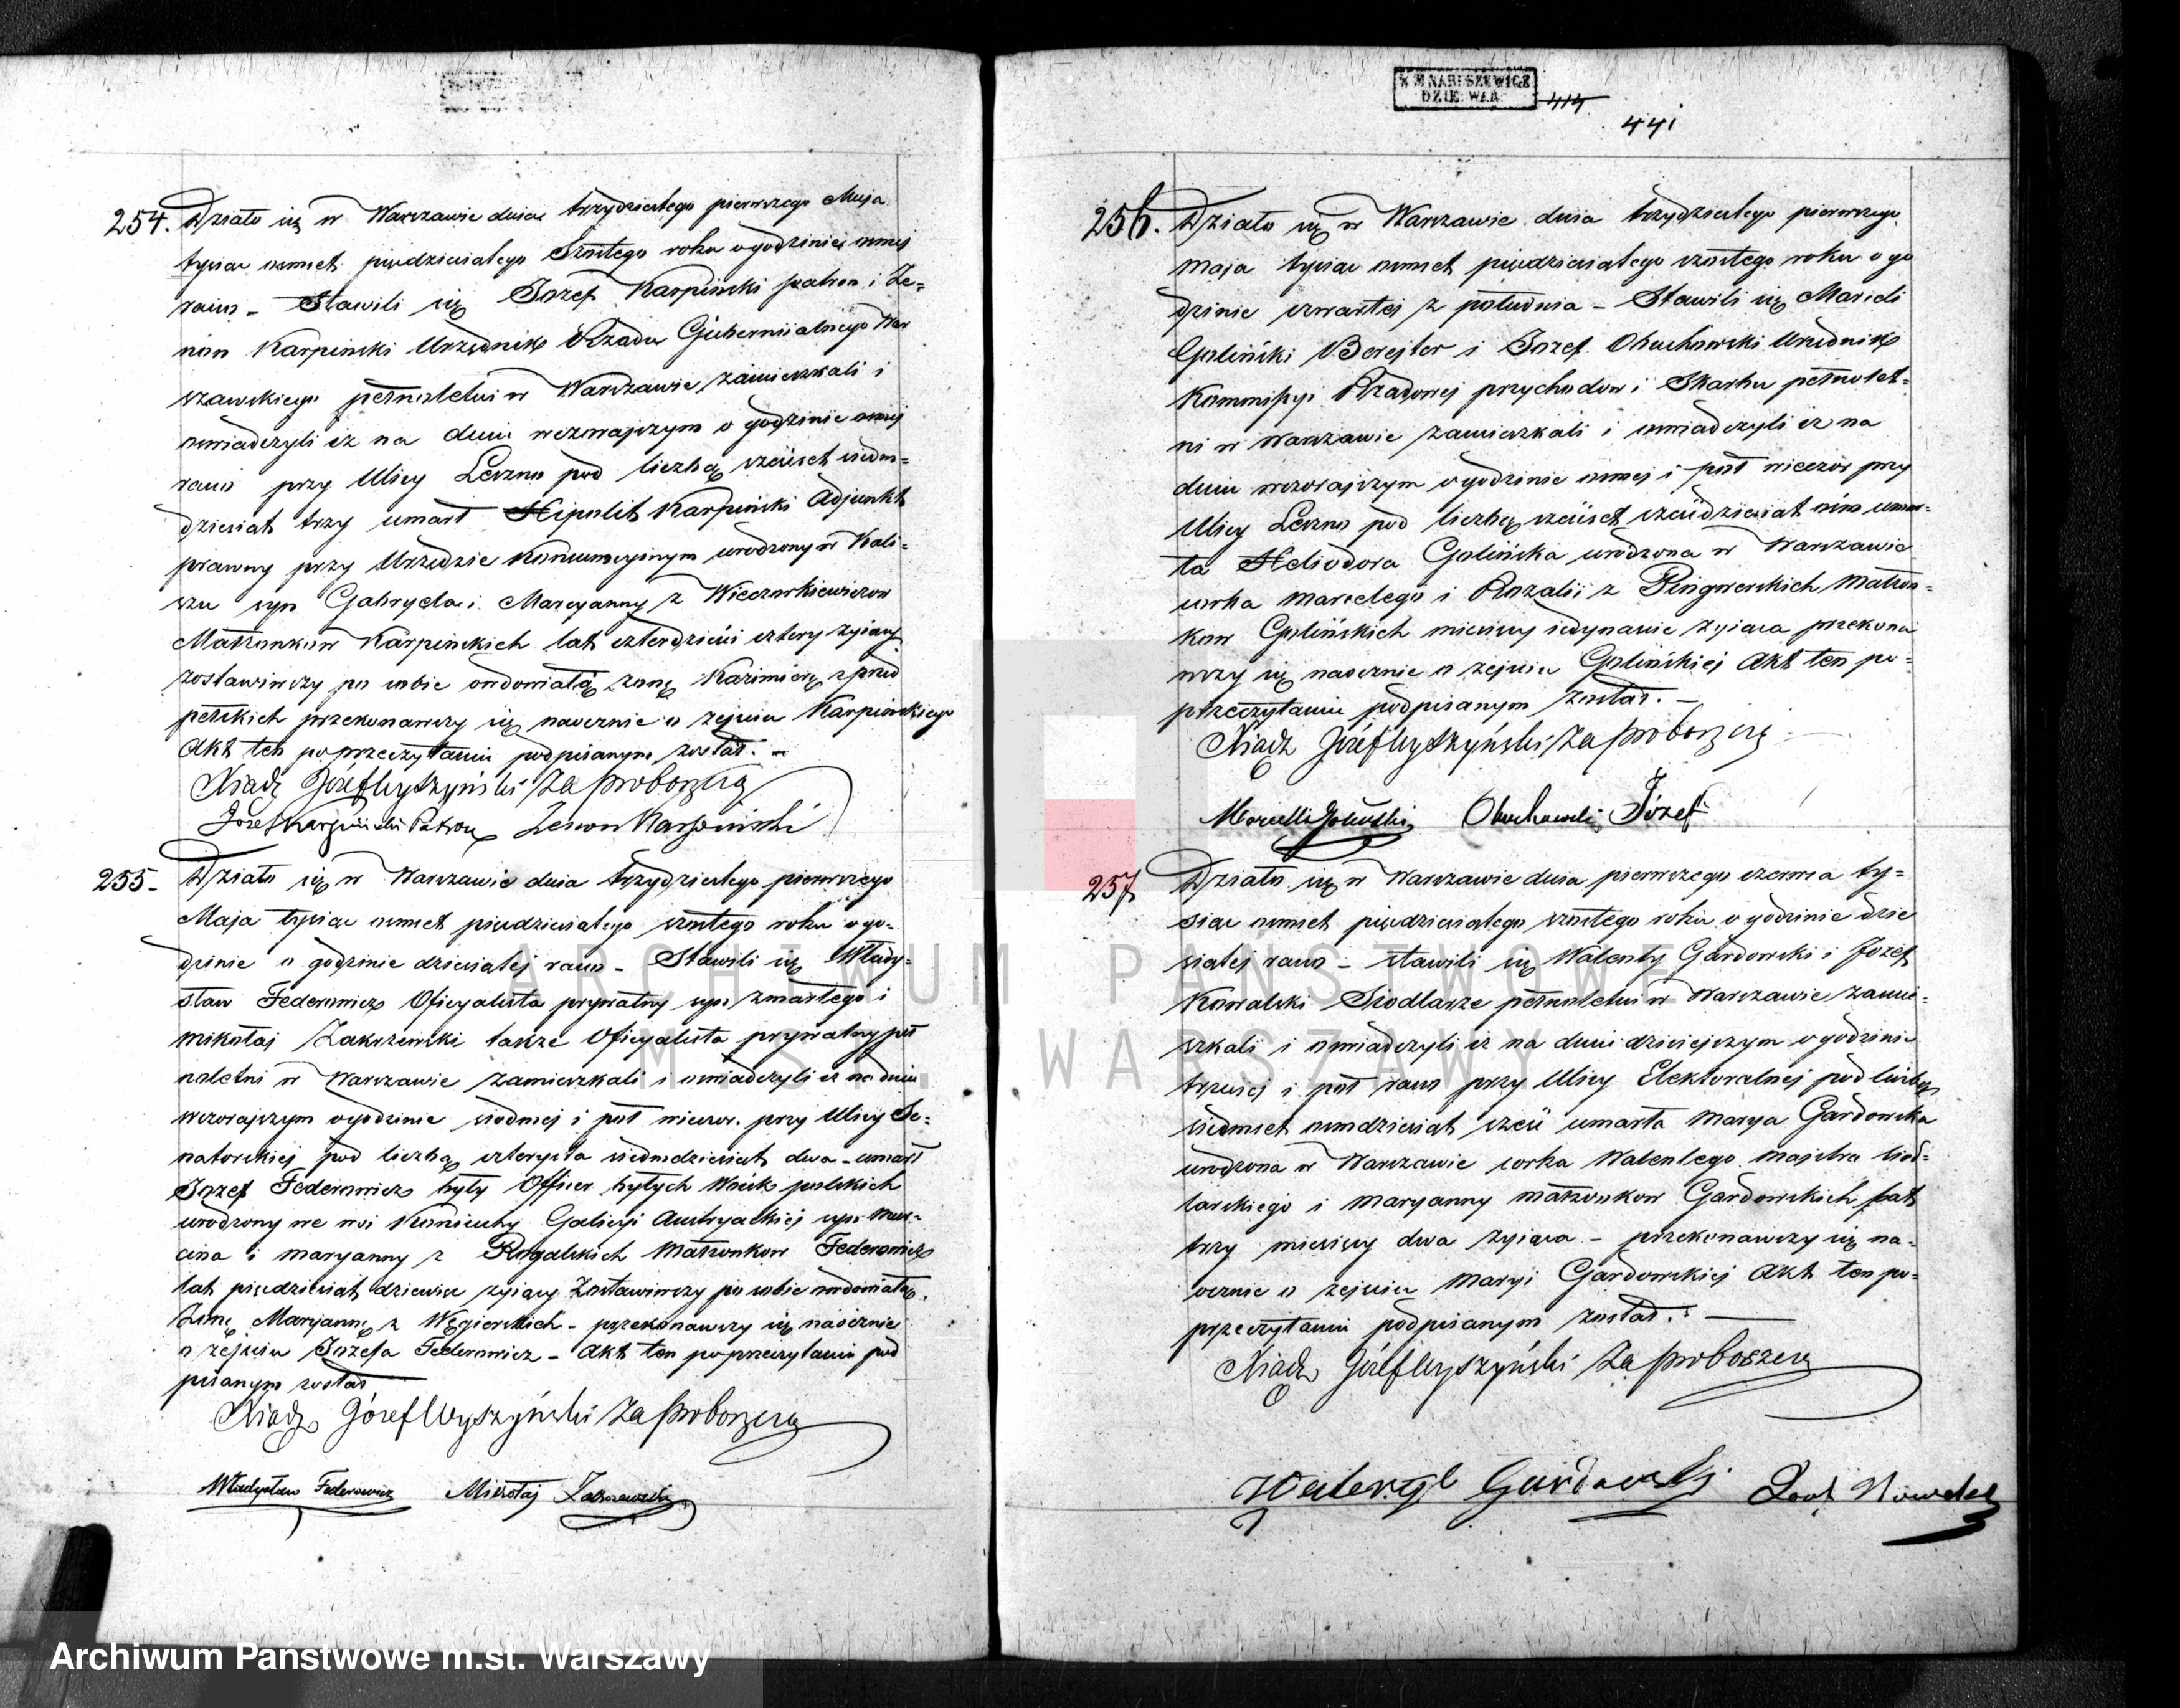 254. Działo się w Warszawie dnia trzydziestego pierwszego Maja
tysiac osmset piędziesiatego Szostego roku o godzinie osmej
rano – Stawili się Jozef Karpinski patron i Ze=
non Karpinski Urzędnik Rządu Gubernialnego War
szawskiego pełnoletni w Warszawie zamieszkali i
oswiadczyli iż na dniu wczorajszym o godzinie osmej
rano przy Ulicy Leszno pod liczbą szeiset siedm=
dziesiat trzy umarł Hipolit Karpinski Adjunkt
prawny przy Urzędzie Konsumcyinym urodzony w Kali=
szu syn Gabryela i Maryanny z Wieczorkiewiczow
Małżonkow Karpinskich lat czterdziesci cztery żyiący
zostawiwszy po sobie owdowiałą żonę Kazimierę z pod
petskich przekonawszy się naocznie o zejsciu Karpinskiego
Akt ten po przeczytaniu podpisanym został. –
Xiądz Józef Wyszyński za proboszcza
Jozef Karpiński Patron Zenon Karpiński
255. Działo się w Warszawie dnia trzydziestego pierwszego
Maja tysiac osmset piędziesiatego szostego roku o go=
dzinie o godzinie dziesiatej rano – Stawili się Włady=
sław Federowicz Oficyalista prywatny syn zmarłego i
mikołaj Zakrzewski także Oficyalista prywatny peł
noletni w Warszawie zamieszkali i oswiadczyli iż na dniu
wczorajszym o godzinie siodmej i poł wieczor. przy Ulicy Se=
natorskiej pod liczbą czterysta siedmdziesiat dwa – umarł
Jozef Federowicz były Officer byłych Woisk polskich
urodzony we wsi Koniuchy Galicyi Austryackiej syn Mar=
cina i maryanny z Rogalskich Małżonkow Federowicz
lat piędziesiat dziewięc żyiący Zostawiwszy po sobie owdowiałą
Żonę Maryannę z Węgierskich – przekonawszy się naocznie
o zejsciu Jozefa Federowicz – Akt ten po przeczytaniu pod
pisanym został
Xiądz Józef Wyszyński za proboszcza
Władysław Federowicz Mikołaj Zakrzewski
K M NARUSZEWICZ
DZIE: WAR
414
441
256. Działo się w Warszawie dnia trzydziestego pierwszego
maja tysiac osmset piędziesiatego szostego roku o go
dzinie czwartej z południa – Stawili się Marceli
Goliński Berejter i Jozef Obuchowski Urzednik
Kommissyi Rządowej przychodow i Skarbu pełnolet=
ni w Warszawie zamieszkali i oswiadczyli iż na
dniu wczorajszym o godzinie osmej i poł wieczor przy
Ulicy Leszno pod liczbą szeiset szeiśdziesiat osm umar=
ła Heliodora Golińska urodzona w Warszawie
corka marcelego i Rozalii z Pingwerskich Małżon=
kow Golińskich miesięcy iedynascie żyiąca przekona
wszy się naocznie o zejsciu Golińskiej Akt ten po=
przeczytaniu podpisanym został. –
Xiądz Józef Wyszyński za proboszcza
Marcelli Goliński Obuchowski Józef
257 Działo się w Warszawie dnia pierwszego czerwca ty=
siac osmset piędziesiatego szostego roku o godzinie dzie
siatej rano – stawili się Walenty Gardowski i Jozef
Kowalski Siodlarze pełnoletni w Warszawie zamie=
szkali i oswiadczyli iż na dniu dzisiejszym o godzinie
trzeciej i poł rano przy Ulicy Elektoralnej pod liczbą
siedmset osmdziesiąt szesć umarła Marya Gardowska
urodzona w Warszawie corka Walentego majstra siod=
larskiego i maryanny małżonkow Gardowskich lat
trzy miesięcy dwa żyiąca – przekonawszy się na=
ocznie o zejsciu Maryi Gardowskiej Akt ten po=
przeczytaniu podpisanym został. –
Xiądz Józef Wyszyński za proboszcza
Walenty Gardowski
ARCHIWUM PAŃSTWOWE
M. ST. WARSZAWY
Archiwum Państwowe m.st. Warszawy